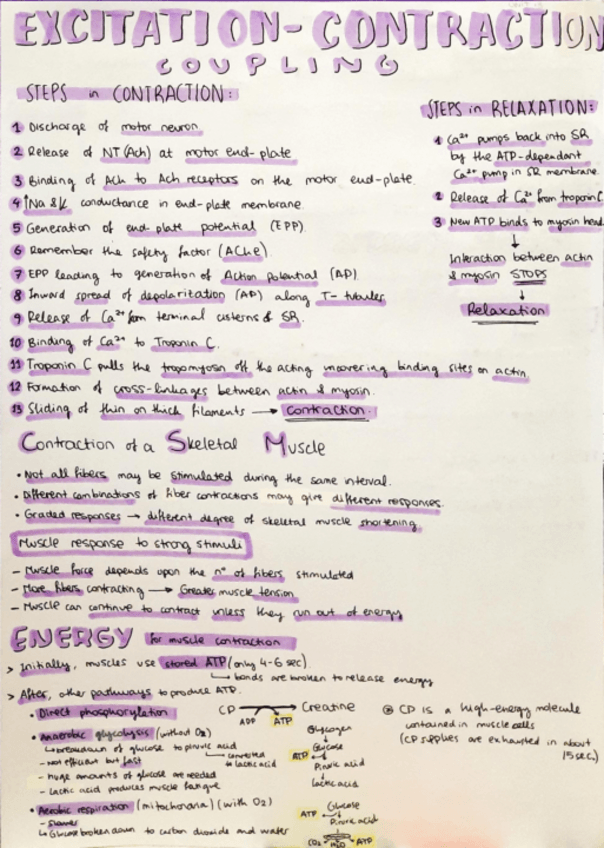 EXCITATION-CONTRACTION
COUPLING
STEPS in CONTRACTION:
1 Discharge of motor neuron
2 Release of NT (Ach) at motor end-plate
3 Binding of Ach to Ach receptors on the motor end-plate.
4 ↑Na & K conductance in end-plate membrane.
5 Generation of end-plate potential (EPP).
6 Remember the safety factor (AChe).
7 EPP leading to generation of Action potential (AP).
8 Inward spread of depolaritation (AP) along T-tubules
9 Release of Ca²⁺ from terminal cisterns of SR.
10 Binding of Ca²⁺ to Troponin C.
11 Troponin C pulls the tropomyosin off the acting uncovering binding sites on actin.
12 Formation of cross-linkages between actin & myosin.
13 Sliding of thin on thick filaments → contraction.
STEPS in RELAXATION:
1 Ca²⁺ pumps back into SR
by the ATP-dependant
Ca²⁺ pump in SR membrane.
2 Release of Ca²⁺ from troponin C
3 New ATP binds to myosin head
↓
Interaction between actin
& myosin STOPS
↓
Relaxation
Contraction of a Skeletal Muscle
• Not all fibers may be stimulated during the same interval.
• Different combinations of fiber contractions may give different responses.
• Graded responses → different degree of skeletal muscle shortening
Muscle response to strong stimuli
- Muscle force depends upon the nº of fibers stimulated
- More fibers contracting → Greater muscle tension
- Muscle can continue to contract unless they run out of energy
ENERGY for muscle contraction
> Initially, muscles use stored ATP (only 4-6 sec).
↳ bonds are broken to release energy
> After, other pathways to produce ATP.
• Direct phosphorylation
CP → Creatine
ADP ATP
• Anaerobic glycolysis (without O₂)
↳ breakdown of glucose to piruvic acid
↳ converted to lactic acid
- not efficient but fast
- huge amounts of glucose are needed
- Lactic acid produces muscle fatigue
Glycogen
↓
Glucose
ATP ←
Piruvic acid
↓
Lactic acid
• Aerobic respiration (mitochondria) (with O₂)
- slower
↳ Glucose broken down to carbon dioxide and water
Glucose
ATP ←
Piruvic acid
CO₂ H₂O ATP
CP is a high-energy molecule
contained in muscle cells
(CP supplies are exhausted in about
15 sec.)